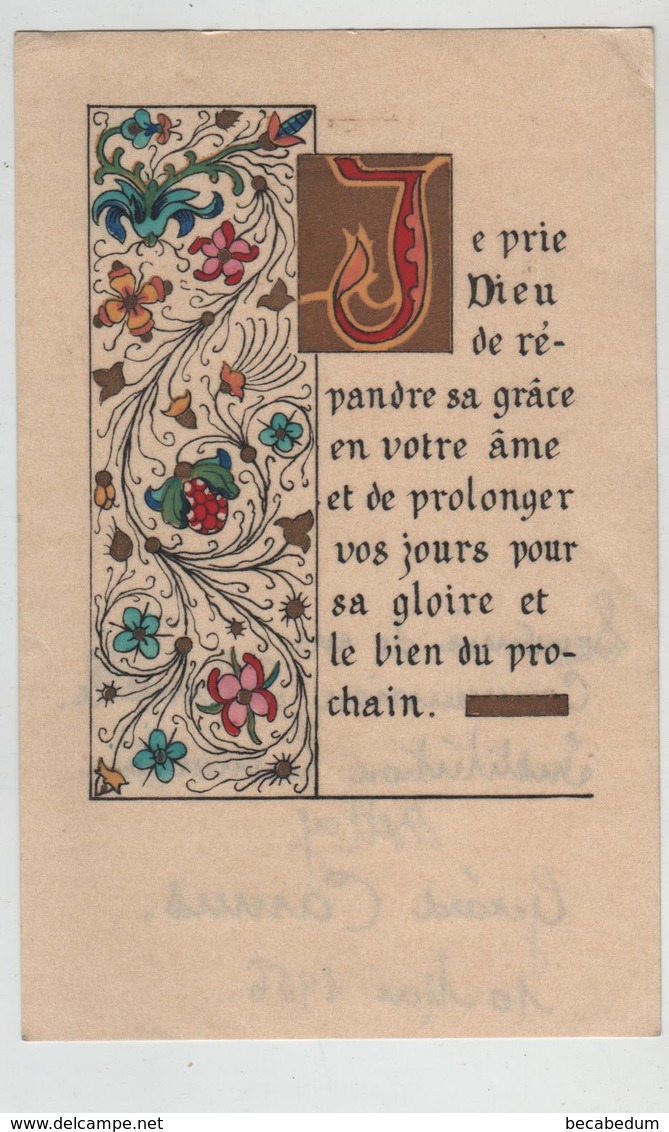 Je prie
Dieu
de ré-
pandre sa grâce
en votre âme
et de prolonger
vos jours pour
sa gloire et
le bien du pro-
chain.
Institution
10 Mai 1956
becabedum